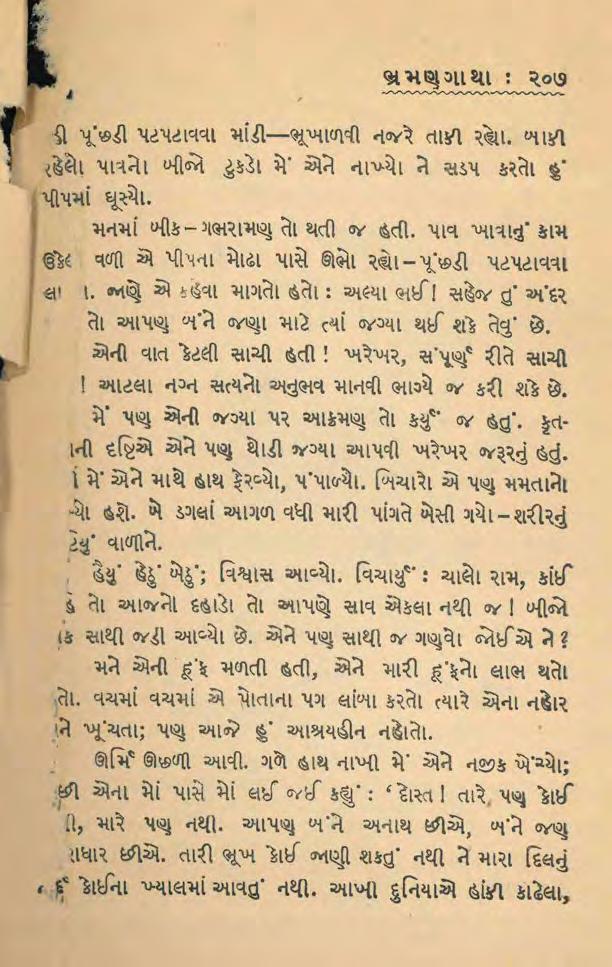 ભ્રમણગાથા : ૨૦૭
ડી પૂંછડી પટપટાવવા માંડી—ભૂખાળવી નજરે તાકી રહ્યો. બાકી
રહેલો પાવનો બીજો ટુકડો મેં એને નાખ્યો ને સડપ કરતો હું
પીપમાં ઘૂસ્યો.
મનમાં બીક–ગભરામણ તો થતી જ હતી. પાવ ખાવાનું કામ
ઉકેલ વળી એ પીપના મોઢા પાસે ઊભો રહ્યો–પૂંછડી પટપટાવવા
લા . જાણે એ કહેવા માગતો હતો : અલ્યા ભઈ! સહેજ તું અંદર
તો આપણ બંને જણા માટે ત્યાં જગ્યા થઈ શકે તેવું છે.
એની વાત કેટલી સાચી હતી! ખરેખર, સંપૂર્ણ રીતે સાચી
! આટલા નગ્ન સત્યનો અનુભવ માનવી ભાગ્યે જ કરી શકે છે.
મેં પણ એની જગ્યા પર આક્રમણ તો કર્યું જ હતું. કૃત-
ાની દૃષ્ટિએ એને પણ થોડી જગ્યા આપવી ખરેખર જરૂરનું હતું.
મેં એને માથે હાથ ફેરવ્યો, પંપાળ્યો. બિચારો એ પણ મમતાનો
ખ્યો હશે. બે ડગલાં આગળ વધી મારી પાંગતે બેસી ગયો–શરીરનું
ટૂંટિયું વાળીને.
હૈયું હેઠું બેઠું; વિશ્વાસ આવ્યો. વિચાર્યું : ચાલો રામ, કાંઈ
હે તો આજનો દહાડો તો આપણે સાવ એકલા નથી જ! બીજો
એક સાથી જડી આવ્યો છે. એને પણ સાથી જ ગણવો જોઈએ ને?
મને એની હૂંફ મળતી હતી, એને મારી હૂંફનો લાભ થતો
તો. વચમાં વચમાં એ પોતાના પગ લાંબા કરતો ત્યારે એના નહોર
ને ખૂંચતા; પણ આજે હું આશ્રયહીન નહોતો.
ઊર્મિ ઊછળી આવી. ગળે હાથ નાખી મેં એને નજીક ખેંચ્યો;
છી એના મોં પાસે મોં લઈ જઈ કહ્યું : ‘દોસ્ત! તારે પણ કોઈ
ી, મારે પણ નથી. આપણ બંને અનાથ છીએ, બંને જણ
રાધાર છીએ. તારી ભૂખ કોઈ જાણી શકતું નથી ને મારા દિલનું
ર્દ કોઈના ખ્યાલમાં આવતું નથી. આખી દુનિયાએ હાંકી કાઢેલા,